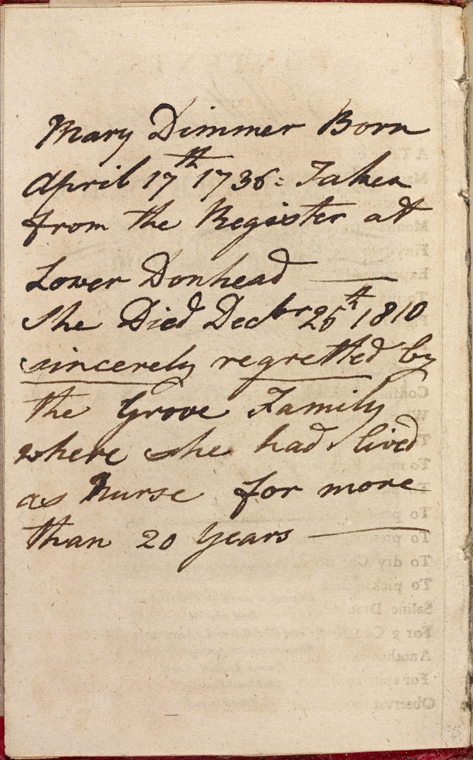 Mary Dimmer Born
April 17th 1736: Taken
from the Register at
Lower Donhead
She Died Decbr 25th 1810
sincerely regretted by
the Grove Family
where she had lived
as Nurse for more
than 20 years